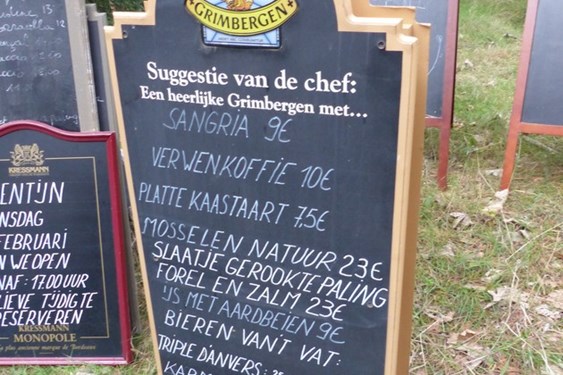 GRIMBERGEN
Suggestie van de chef:
Een heerlijke Grimbergen met...
SANGRIA 9€
VERWENKOFFIE 10€
PLATTE KAASTAART 7,5€
MOSSELEN NATUUR 23€
SLAATJE GEROOKTE PALING
FOREL EN ZALM 23€
IJS MET AARDBEIEN 9€
BIEREN VAN'T VAT:
TRIPLE D'ANVERS:
KRESSMANN
ENTIJN
NSDAG
FEBRUARI
N WE OPEN
NAF: 17.00 UUR
LIEVE TIJDIG TE
RESERVEREN
KRESSMANN
MONOPOLE
La plus ancienne marque de Bordeaux